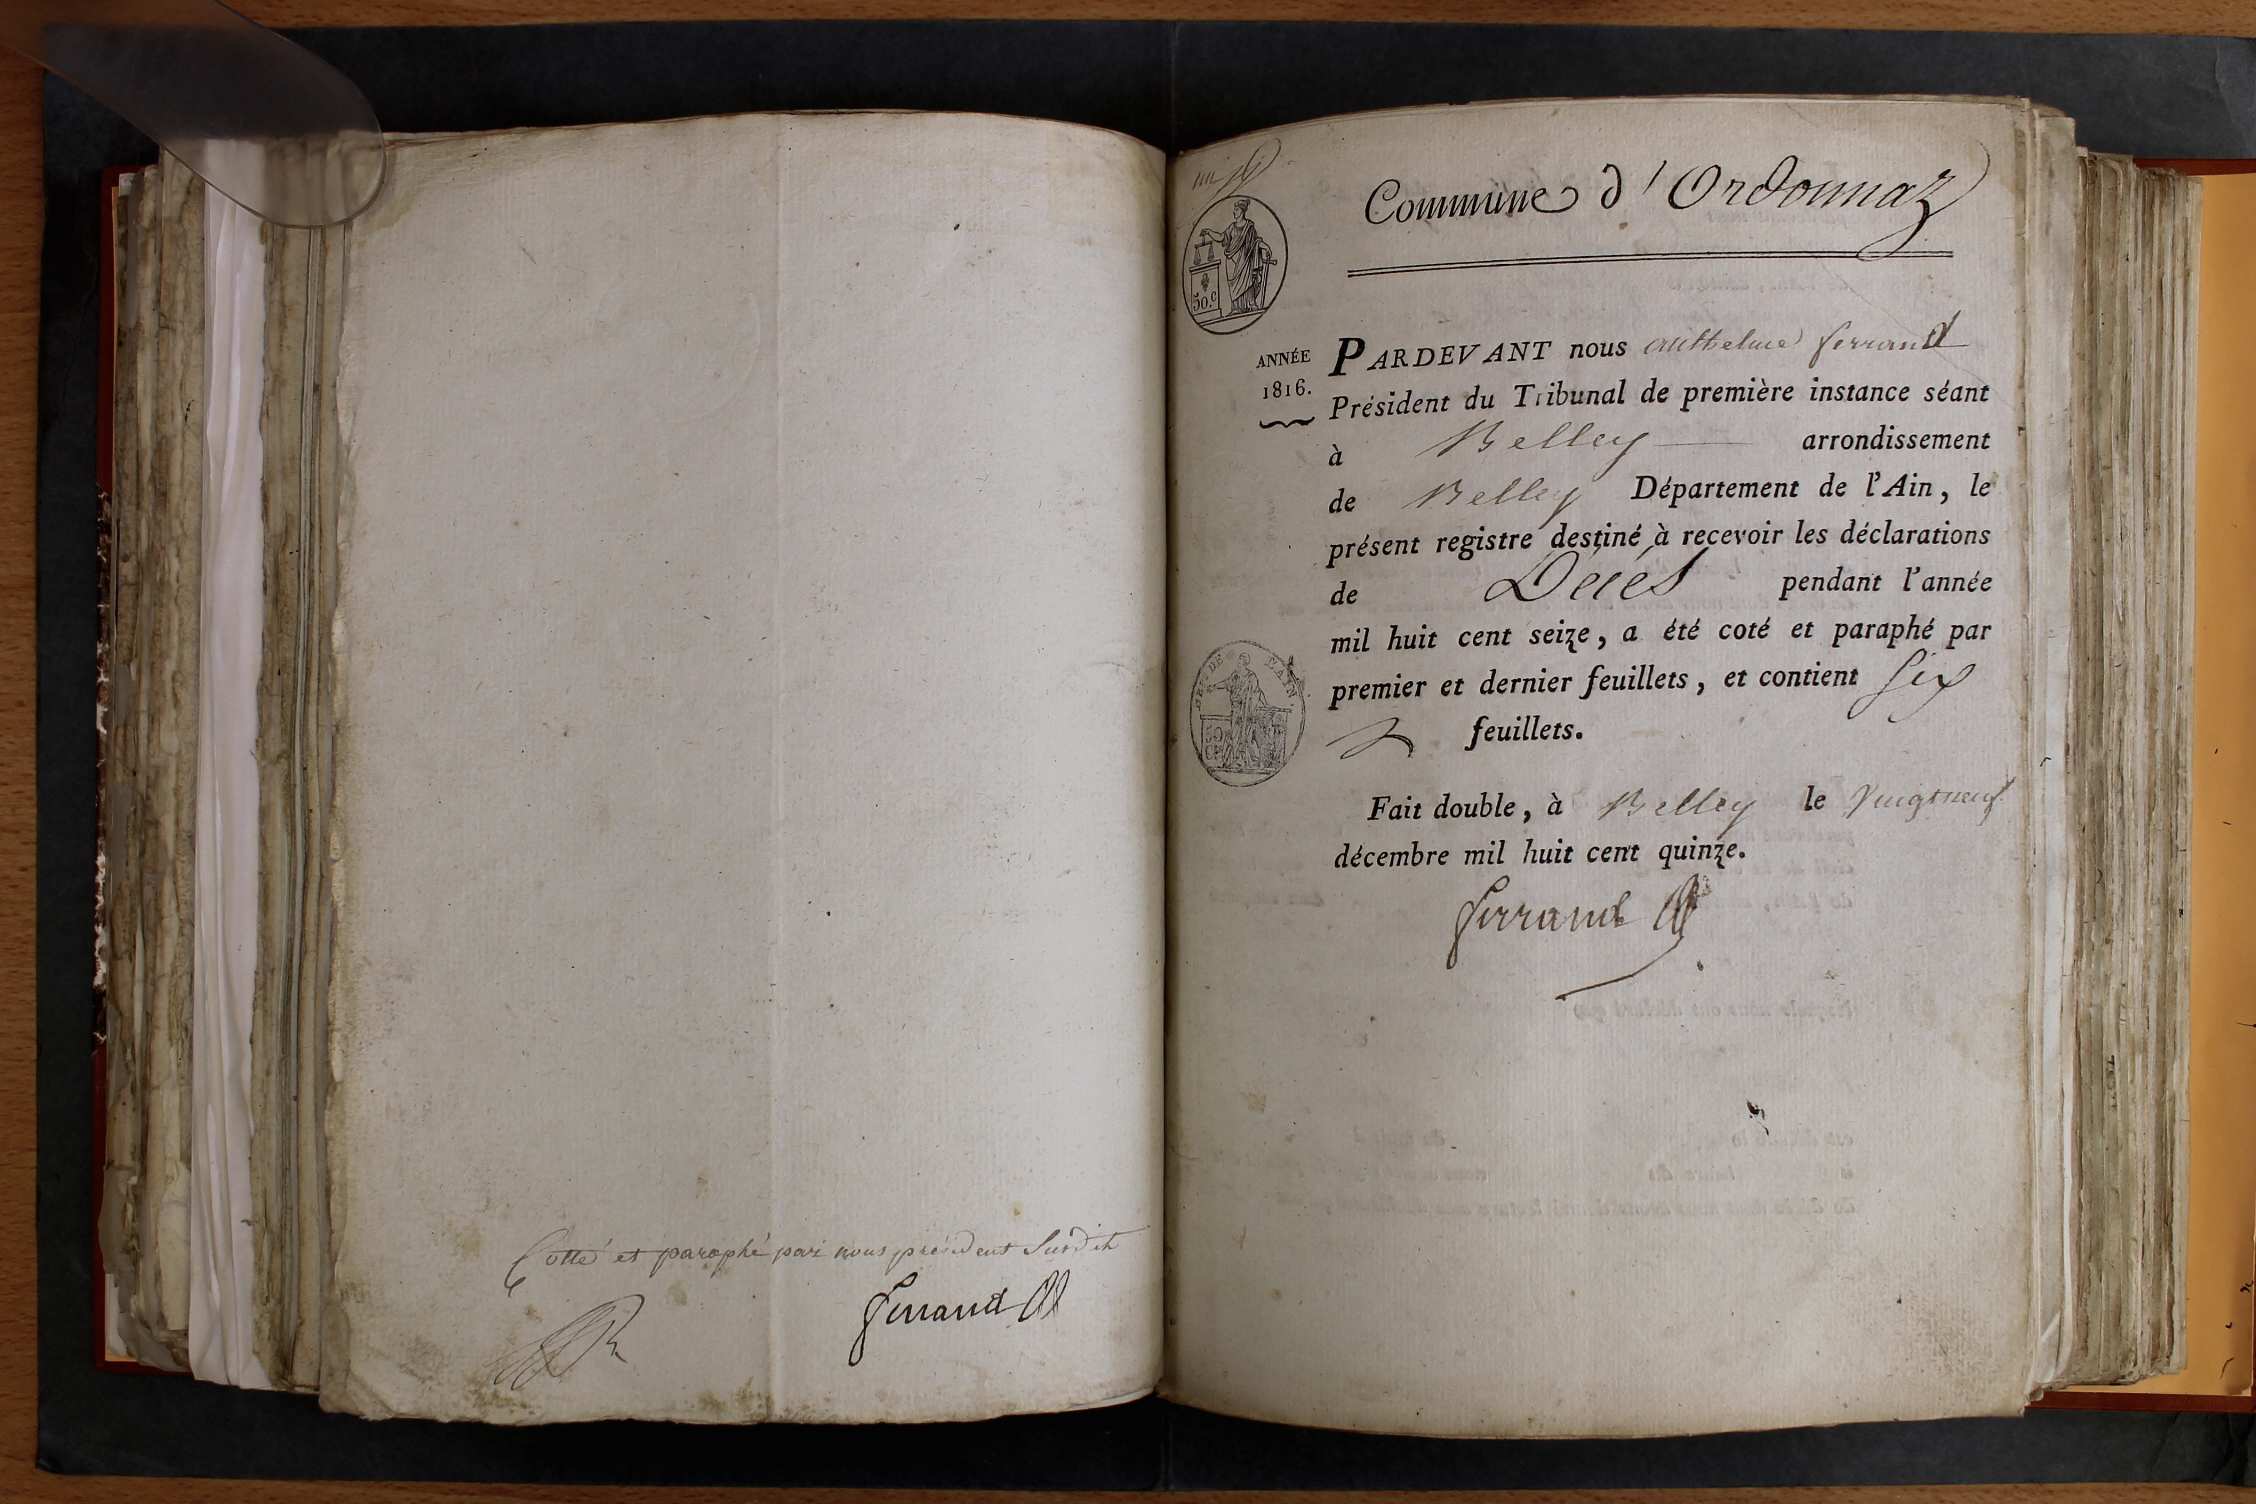 Cotté et paraphé par nous président Susdit
ferrand
Commune d'Ordonnaz
50.c
ANNÉE
1816.
PARDEVANT nous anthelme ferrand
Président du Tribunal de première instance séant
à Belley arrondissement
de Belley Département de l'Ain, le
présent registre destiné à recevoir les déclarations
de Décés pendant l'année
mil huit cent seize, a été coté et paraphé par
premier et dernier feuillets, et contient Six
feuillets.
DE L'AIN
50
Fait double, à Belley le vingtneuf
décembre mil huit cent quinze.
ferrand